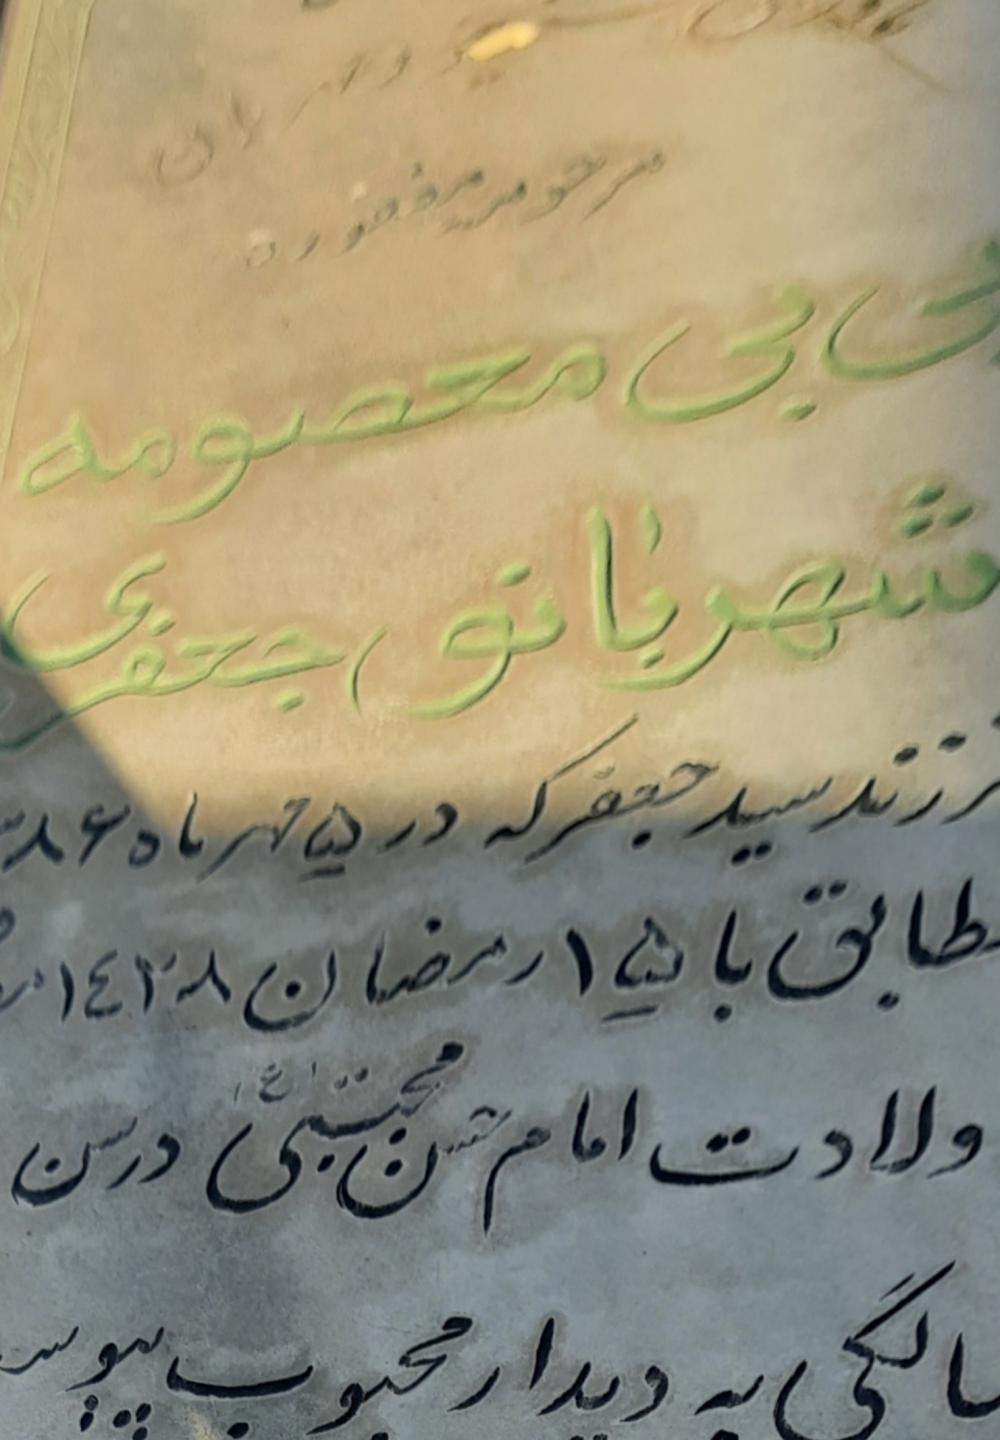 مرحومه مغفوره
بی بی معصومه
شهربانو جعفری
فرزند سید جعفر که در ۵ مهر ماه ۸۶
مطابق با ۱۵ رمضان ۱۴۲۸
ولادت امام حسن مجتبی (ع) در سن
سالگی به دیدار محبوب پیوست